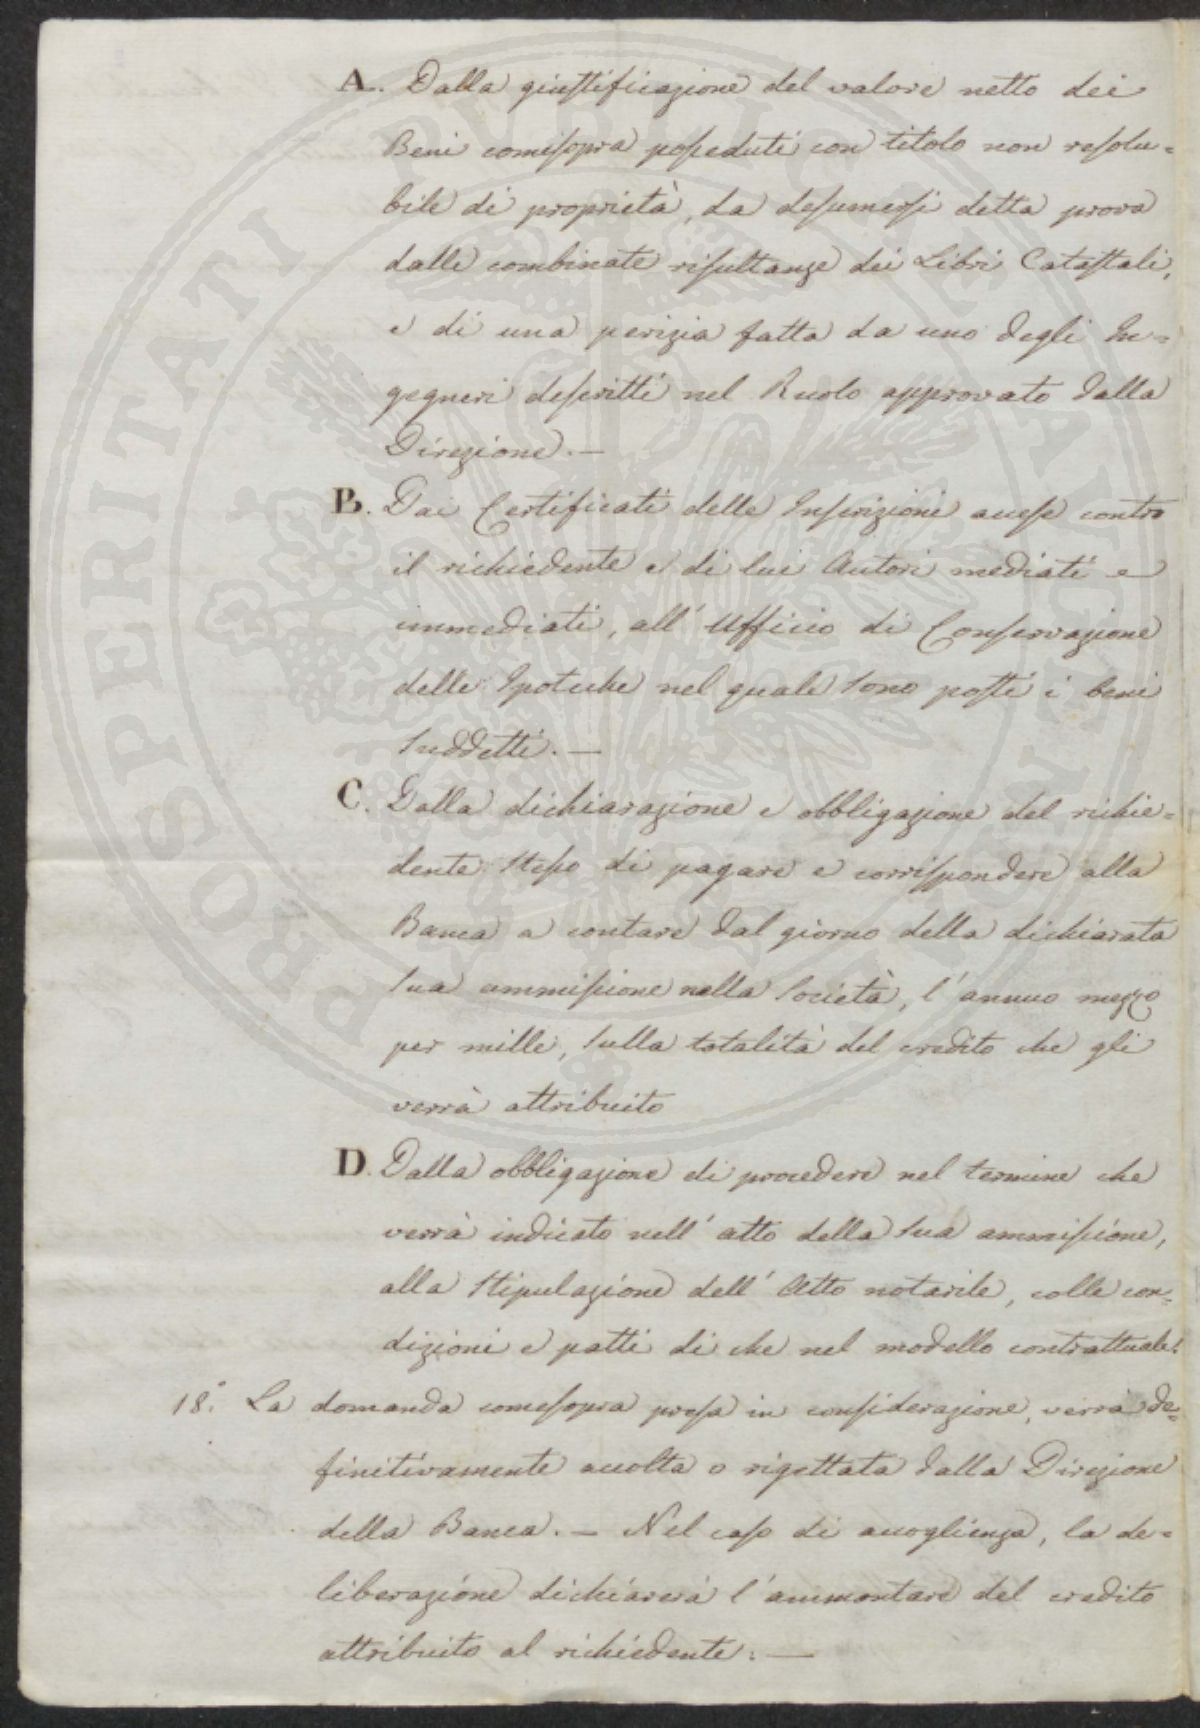 A. Dalla giustificazione del valore netto dei
Beni comisopra posseduti con titolo non resolu=
bile di proprietà, da desumersi detta prova
dalle combinate risultanze dei Libri Catastali,
e di una perizia fatta da uno degli In=
gegneri descritti nel Ruolo approvato dalla
Direzione. —
B. Dai Certificati delle Inscrizioni accese contro
il richiedente e di lui Autori mediati e
immediati, all' Ufficio di Conservazione
delle Ipoteche nel quale sono posti i beni
suddetti. —
C. Dalla dichiarazione e obbligazione del richie=
dente stesso di pagare e corrispondere alla
Banca a contare dal giorno della dichiarata
sua ammissione nella Società, l'annuo mezzo
per mille, sulla totalità del credito che gli
verrà attribuito
D. Dalla obbligazione di procedere nel termine che
verrà indicato nell' atto della sua ammissione,
alla stipulazione dell' Atto notarile, colle con=
dizioni e patti di che nel modello contrattuale.
18.° La domanda comesopra presa in considerazione, verrà de=
finitivamente accolta o rigettata dalla Direzione
della Banca. — Nel caso di accoglienza, la de=
liberazione dichiarerà l'ammontare del credito
attribuito al richiedente. —
PROSPERITATI PUBLICAE AUGENDAE